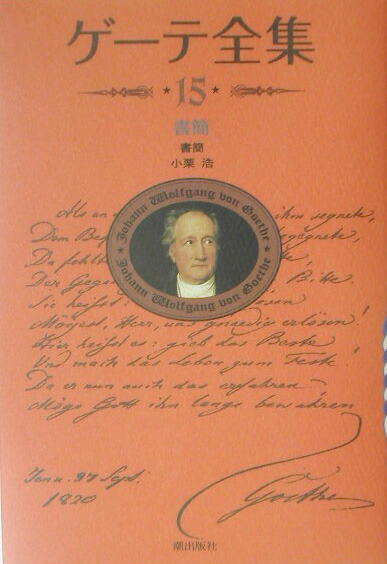 ゲーテ全集
15
書簡
書簡
小栗 浩
Johann Wolfgang von Goethe
Johann Wolfgang von Goethe
Als an ihm segnete,
Dem
Da fehlt
Der Gegen Bitte.
Sie heißet:
Mögest, Herr, uns gnaedig erlösen!
Hier heißt es: gieb das Beste
Und mach das Leben zum Feste!
Da er nun auch das erfahren
Möge Gott ihn lange bewahren
Jena. 27 Sept.
1820
Goethe
潮出版社